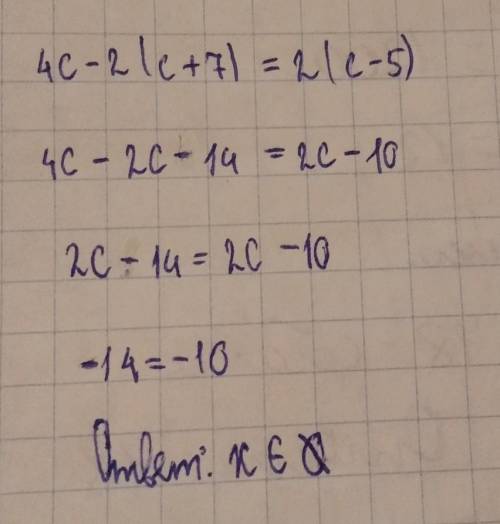 4c - 2(c + 7) = 2(c - 5)
4c - 2c - 14 = 2c - 10
2c - 14 = 2c - 10
-14 = -10
Ответ: x ∈ ∅